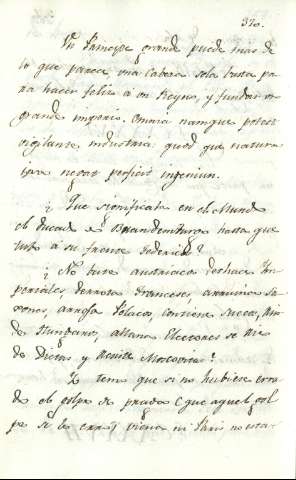 320.
Un Principe grande puede mas de
lo que parece, una cabeza sola basta pa
ra hacer feliz á un Reyno, y fundar un
grande imperio. Omnia namque potest
vigilante industria quod que natura
ipsa negat perficit ingenium.
¿Que significaba en el Mundo
el Ducado de Brandemburgo hasta que
tubo á su frente Federico?
¿No bate austriacos deshace Im
periales, derrota Franceses, arruina Sa
xones, arrolla Polacos, contiene Suecos,
Hungaros, allana Electores se
de Dietas y Moscovia?
Y tem que si no hubiese erra
do el golpe de prado (que aquel gol
pe se le erró) Viena ni Paris no estar